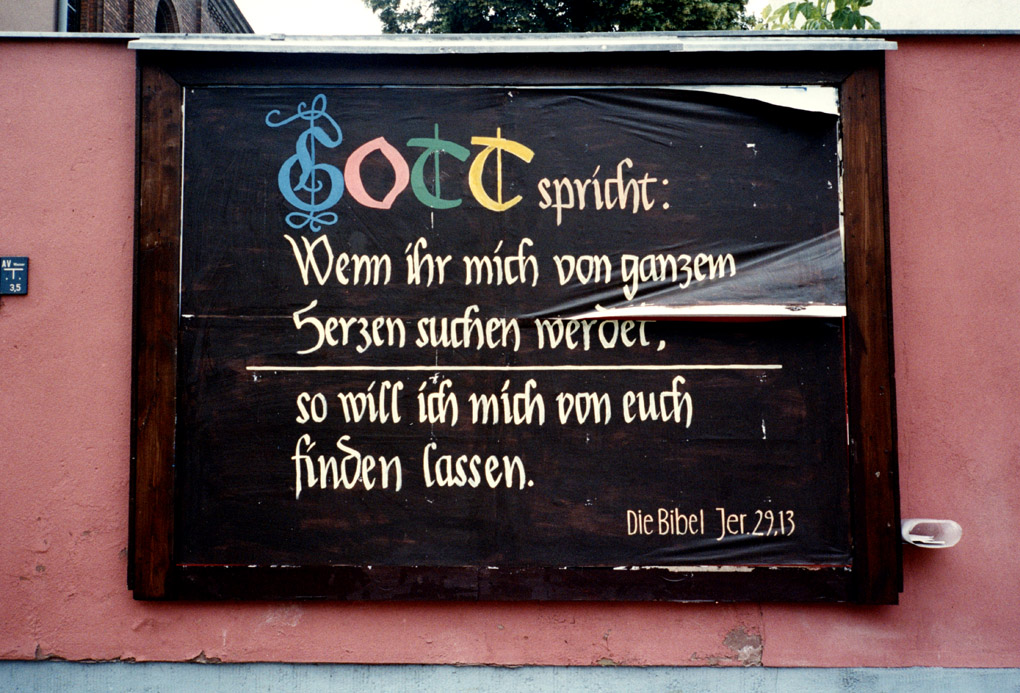 AV
3,5
Gott spricht:
Wenn ihr mich von ganzem
Herzen suchen werdet,
so will ich mich von euch
finden lassen.
Die Bibel Jer. 29,13